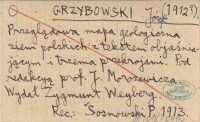 GRZYBOWSKI Józef (1912₃)
Przeglądowa mapa geologiczna
ziem polskich z tekstem objaśnia-
jącym i trzema przekrojami. Pod
redakcją prof. J. Morozewicza.
Wydał Zygmunt Weyberg.
Rec.: Sosnowski P. 1913.